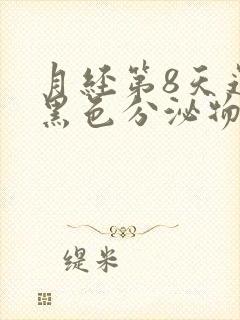 月经第8天
黑色分泌物
缇米